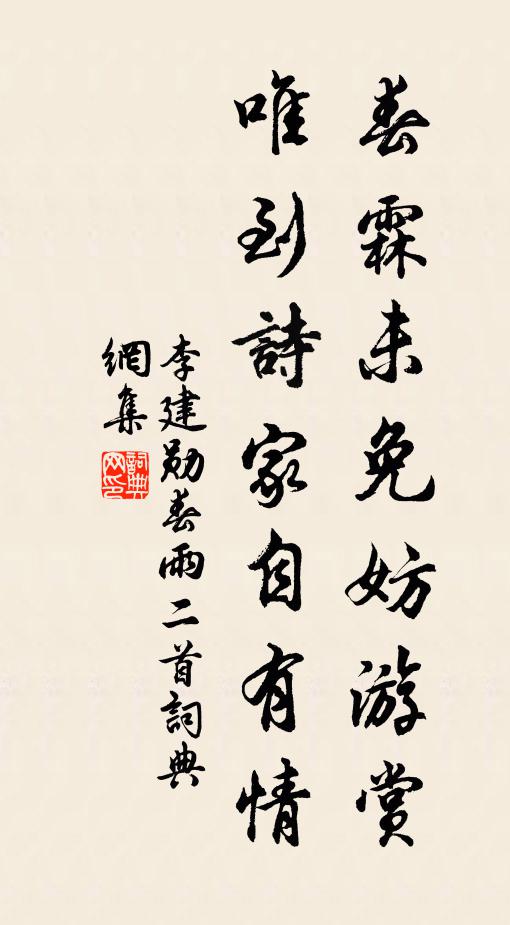 春霖未免妨游賞
唯到詩家自有情
李建勛春雨二首詞典
網集
詞典
网印